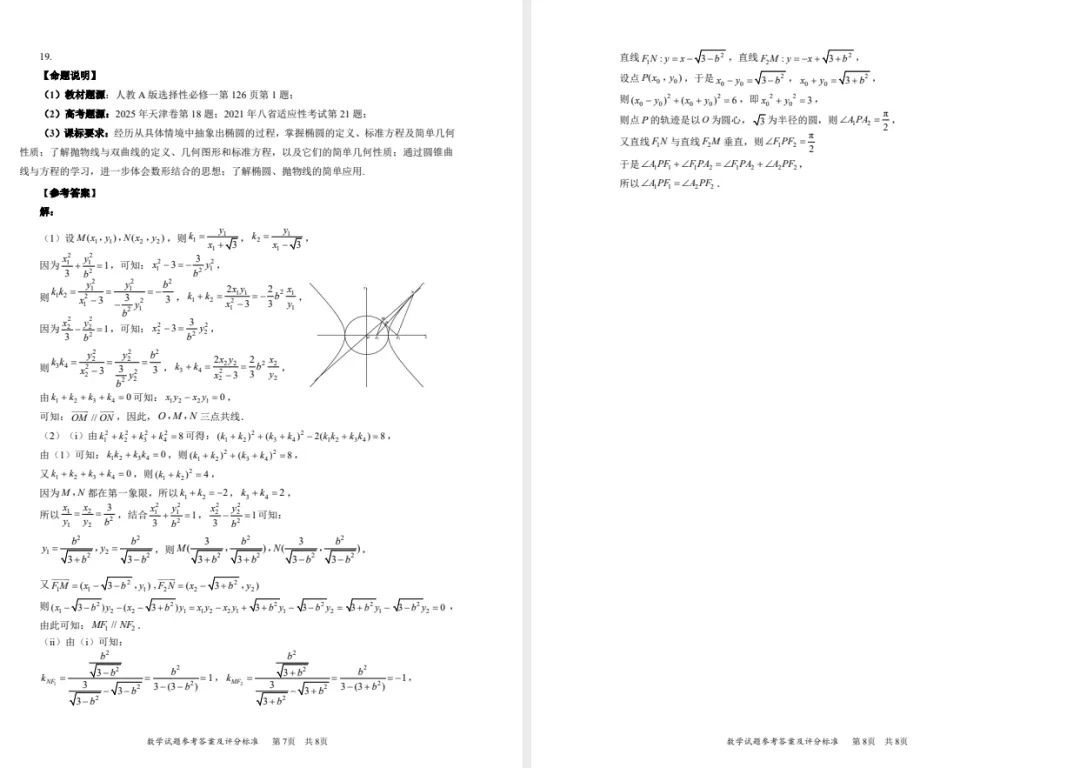 19.
【命题说明】
（1）教材题源：人教 A 版选择性必修一第 126 页第 1 题；
（2）高考题源：2025 年天津卷第 18 题；2021 年八省适应性考试第 21 题；
（3）课标要求：经历从具体情境中抽象出椭圆的过程，掌握椭圆的定义、标准方程及简单几何
性质；了解抛物线与双曲线的定义、几何图形和标准方程，以及它们的简单几何性质；通过圆锥曲
线与方程的学习，进一步体会数形结合的思想；了解椭圆、抛物线的简单应用.
【参考答案】
解：
（1）设 M(x₁，y₁)，N(x₂，y₂)，则 k₁ = y₁/(x₁+√3)，k₂ = y₁/(x₁−√3)，
因为 x₁²/3 + y₁²/b² = 1，可知：x₁²−3 = −(3/b²)y₁²，
则 k₁k₂ = y₁²/(x₁²−3) = y₁²/(−(3/b²)y₁²) = −b²/3，k₁+k₂ = 2x₁y₁/(x₁²−3) = −(2/3)b²(x₁/y₁)，
因为 x₂²/3 − y₂²/b² = 1，可知：x₂²−3 = (3/b²)y₂²，
则 k₃k₄ = y₂²/(x₂²−3) = y₂²/((3/b²)y₂²) = b²/3，k₃+k₄ = 2x₂y₂/(x₂²−3) = (2/3)b²(x₂/y₂)，
由 k₁+k₂+k₃+k₄=0 可知：x₁y₂−x₂y₁=0，
可知：OM // ON，因此，O，M，N 三点共线.
（2）（i）由 k₁²+k₂²+k₃²+k₄²=8 可得：(k₁+k₂)²+(k₃+k₄)²−2(k₁k₂+k₃k₄)=8，
由（1）可知：k₁k₂+k₃k₄=0，则 (k₁+k₂)²+(k₃+k₄)²=8，
又 k₁+k₂+k₃+k₄=0，则 (k₁+k₂)²=4，
因为 M，N 都在第一象限，所以 k₁+k₂=−2，k₃+k₄=2，
所以 x₁/y₁ = x₂/y₂ = 3/b²，结合 x₁²/3 + y₁²/b² = 1，x₂²/3 − y₂²/b² = 1 可知：
y₁ = b²/√(3+b²)，y₂ = b²/√(3−b²)，则 M(3/√(3+b²)，b²/√(3+b²))，N(3/√(3−b²)，b²/√(3−b²))，
又 F₁M = (x₁−√(3−b²)，y₁)，F₂N = (x₂−√(3+b²)，y₂)
则 (x₁−√(3−b²))y₂−(x₂−√(3+b²))y₁ = x₁y₂−x₂y₁+√(3+b²)y₁−√(3−b²)y₂ = √(3+b²)y₁−√(3−b²)y₂ = 0，
由此可知：MF₁ // NF₂.
（ii）由（i）可知：
k_NF₁ = (b²/√(3−b²))/(3/√(3−b²)−√(3−b²)) = b²/(3−(3−b²)) = 1，k_MF₂ = (b²/√(3+b²))/(3/√(3+b²)−√(3+b²)) = b²/(3−(3+b²)) = −1，
数学试题参考答案及评分标准 第 7页 共 8页
直线 F₁N：y = x−√(3−b²)，直线 F₂M：y = −x+√(3+b²)，
设点 P(x₀，y₀)，于是 x₀−y₀ = √(3−b²)，x₀+y₀ = √(3+b²)，
则 (x₀−y₀)²+(x₀+y₀)²=6，即 x₀²+y₀²=3，
则点 P 的轨迹是以 O 为圆心，√3 为半径的圆，则 ∠A₁PA₂ = π/2，
又直线 F₁N 与直线 F₂M 垂直，则 ∠F₁PF₂ = π/2
于是 ∠A₁PF₁+∠F₁PA₂=∠F₁PA₂+∠A₂PF₂，
所以 ∠A₁PF₁=∠A₂PF₂.
数学试题参考答案及评分标准 第 8页 共 8页